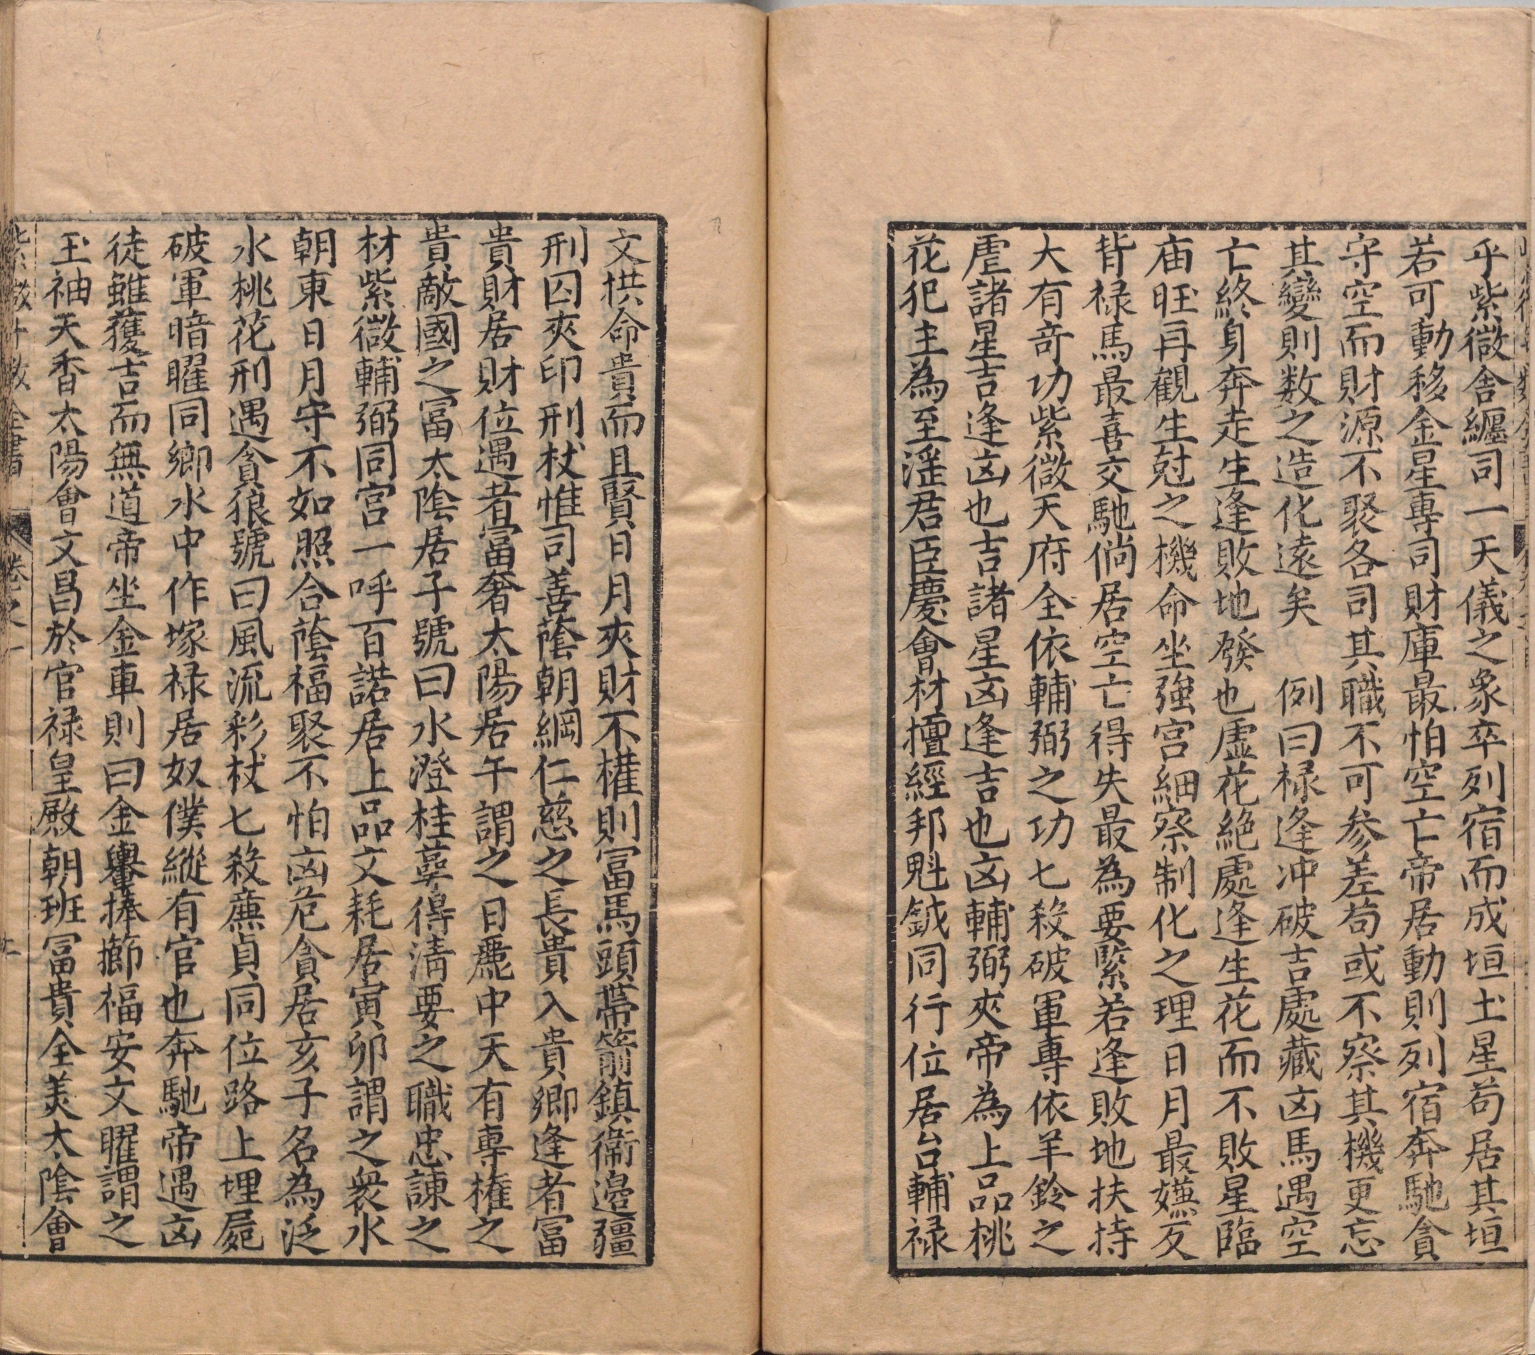 乎紫微舍纏司一天儀之象卒列宿而成垣土星苟居其垣
若可動移金星專司財庫最怕空亡帝居動則列宿奔馳貪
守空而財源不聚各司其職不可参差苟或不察其機更忘
其變則数之造化遠矣　例曰禄逢冲破吉處藏凶馬遇空
亡終身奔走生逢敗地發也虛花絕處逢生花而不敗星臨
庙旺再觀生尅之機命坐強宮細察制化之理日月最嫌反
背禄馬最喜交馳倘居空亡得失最為要緊若逢敗地扶持
大有奇功紫微天府全依輔弼之功七殺破軍專依羊鈴之
虐諸星吉逢凶也吉諸星凶逢吉也凶輔弼夾帝為上品桃
花犯主為至滛君臣慶會材擅經邦魁鉞同行位居台輔禄
文拱命貴而且賢日月夾財不權則冨馬頭帶箭鎮衛邉疆
刑囚夾印刑杖惟司善蔭朝綱仁慈之長貴入貴卿逢者冨
貴財居財位遇者富奢太陽居午謂之日麗中天有專權之
貴敵國之冨太陰居子號曰水澄桂萼得清要之職忠諫之
材紫微輔弼同宮一呼百諾居上品文耗居寅卯謂之衆水
朝東日月守不如照合蔭福聚不怕凶危貪居亥子名為泛
水桃花刑遇貪狼號曰風流彩杖七殺廉貞同位路上埋屍
破軍暗曜同鄉水中作塚禄居奴僕縱有官也奔馳帝遇凶
徒雖獲吉而無道帝坐金車則曰金轝捧節福安文曜謂之
玉袖天香太陽會文昌於官禄皇殿朝班冨貴全美太陰會
紫微斗數全書　卷之一